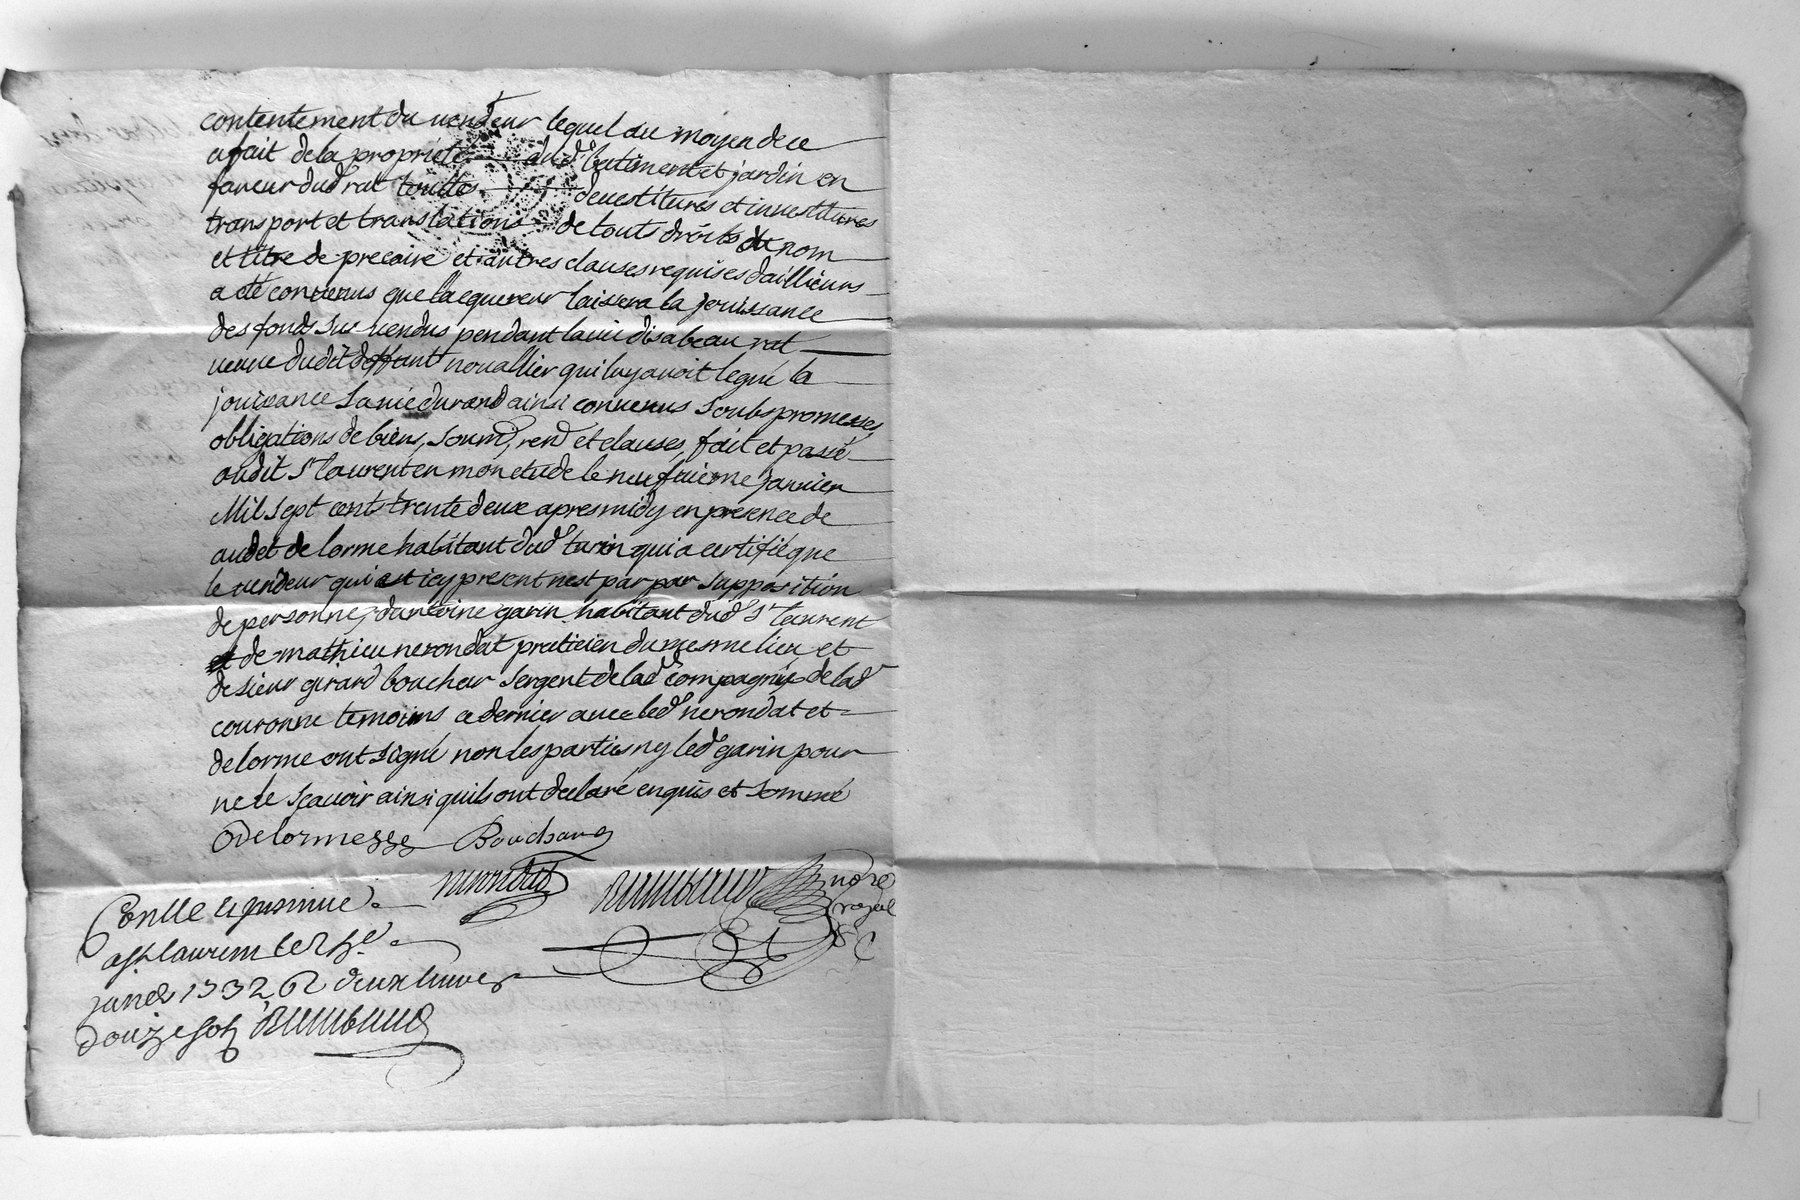 contentement du vendeur lequel au moyen de ce
a fait de la propriete dud. batiment et jardin en
faveur dud rat touttes devestitures et investitures
transport et translations de touts droits du nom
et titre de precaire et autres clauses requises dailleurs
a été convenus que lacquereur laisera la jouissance
des fonds sus vendus pendant la vie disabeau rat
veuve dudit deffunt nouallier qui luy avoit legué la
jouisance sa vie durand ainsi convenus soubs promesses
obligations de biens, soumd, rend et clauses, fait et passé
audit St laurent en mon etude le neufvieme janvier
Mil sept cents trente deux apres midy en presence de
audet de lorme habitant dud turin qui a certifié que
le vendeur qui est icy present nest par par supposition
de personne, dantoine garin habitant dud St laurent
et de mathieu nerondat praticien du mesme lieu et
de sieur girard boucher sergent de lad compagnie de lad
couronne temoins ce dernier avec led nerondat et
delorme ont signé non les parties ny led garin pour
ne le sçavoir ainsi quils ont declaré enquis et sommé
Delorme Bouchard
nerondat notre
royal
Conlle
a St laurent le
janer 1732 deux livres
douze sols